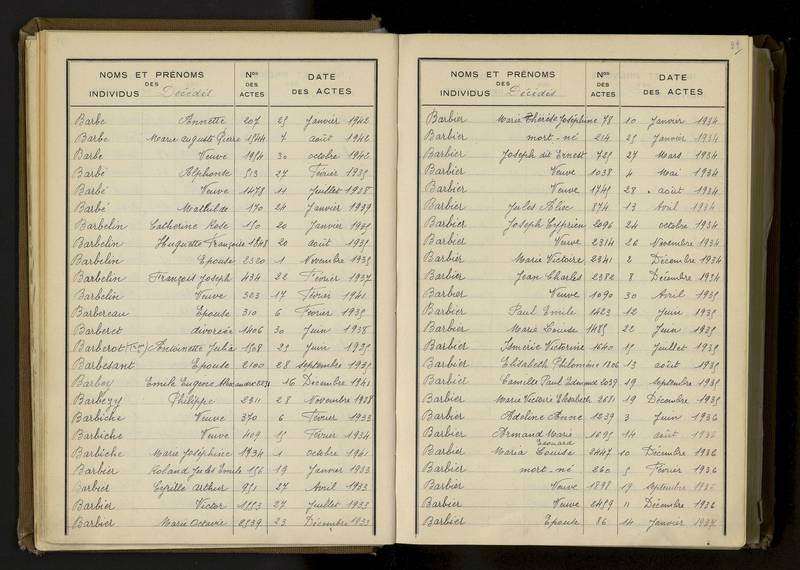 NOMS ET PRÉNOMS DES INDIVIDUS Décédés Nos DES ACTES DATE DES ACTES
Barbe Annette 207 25 Janvier 1942
Barbe Marie Auguste Pierre 1544 7 août 1942
Barbe Veuve 30 octobre 1942
Barbé Alphonse 513 27 Février 1935
Barbé Veuve 1473 11 Juillet 1938
Barbé Mathilde 170 24 Janvier 1939
Barbelin Catherine Rose 150 20 Janvier 1935
Barbelin Huguette Françoise 1548 20 août 1935
Barbelin Epouse 2320 1 Novembre 1935
Barbelin François Joseph 434 22 Février 1937
Barbelin Veuve 323 17 Février 1941
Barbereau Epouse 310 6 Février 1935
Barberet divorcée 1406 30 Juin 1938
Barberot Antoinette Julia 1508 25 Juin 1935
Barbesant Epouse 2100 28 septembre 1935
Barbey Emile Eugène Alexandre 16 Décembre 1941
Barbezy Philippe 2311 28 Novembre 1938
Barbiche Veuve 370 6 Février 1933
Barbiche Veuve 409 15 Février 1934
Barbiche Marie Joséphine 1734 1 octobre 1941
Barbier Roland Jules Emile 156 19 Janvier 1933
Barbier Cyrille Arthur 951 27 Avril 1933
Barbier Victor 1553 27 Juillet 1933
Barbier Marie Octavie 2539 23 Décembre 1933
39
NOMS ET PRÉNOMS DES INDIVIDUS Décédés Nos DES ACTES DATE DES ACTES
Barbier Marie Thérèse Joséphine 78 10 Janvier 1934
Barbier mort-né 214 25 Janvier 1934
Barbier Joseph dit Ernest 725 27 Mars 1934
Barbier Veuve 1038 4 Mai 1934
Barbier Veuve 1745 28 août 1934
Barbier Jules Alix 874 13 Avril 1934
Barbier Joseph Cyprien 2096 24 octobre 1934
Barbier Veuve 2314 26 Novembre 1934
Barbier Marie Victoire 2341 2 Décembre 1934
Barbier Jean Charles 2382 8 Décembre 1934
Barbier Veuve 1090 30 Avril 1935
Barbier Paul Emile 1423 12 Juin 1935
Barbier Marie Louise 1485 22 Juin 1935
Barbier Ismérie Victorine 1640 15 Juillet 1935
Barbier Elisabeth Philomène 1806 13 août 1935
Barbier Camille Paul Edmond 2039 19 septembre 1935
Barbier Marie Victoire Elisabeth 2651 19 Décembre 1935
Barbier Adeline Anne 1239 3 Juin 1936
Barbier Armand Marie Edouard 1695 14 août 1936
Barbier Maria Louise 2447 10 Décembre 1936
Barbier mort-né 260 5 Février 1936
Barbier Veuve 1898 19 septembre 1936
Barbier Veuve 2459 11 Décembre 1936
Barbier Epouse 86 14 Janvier 1937